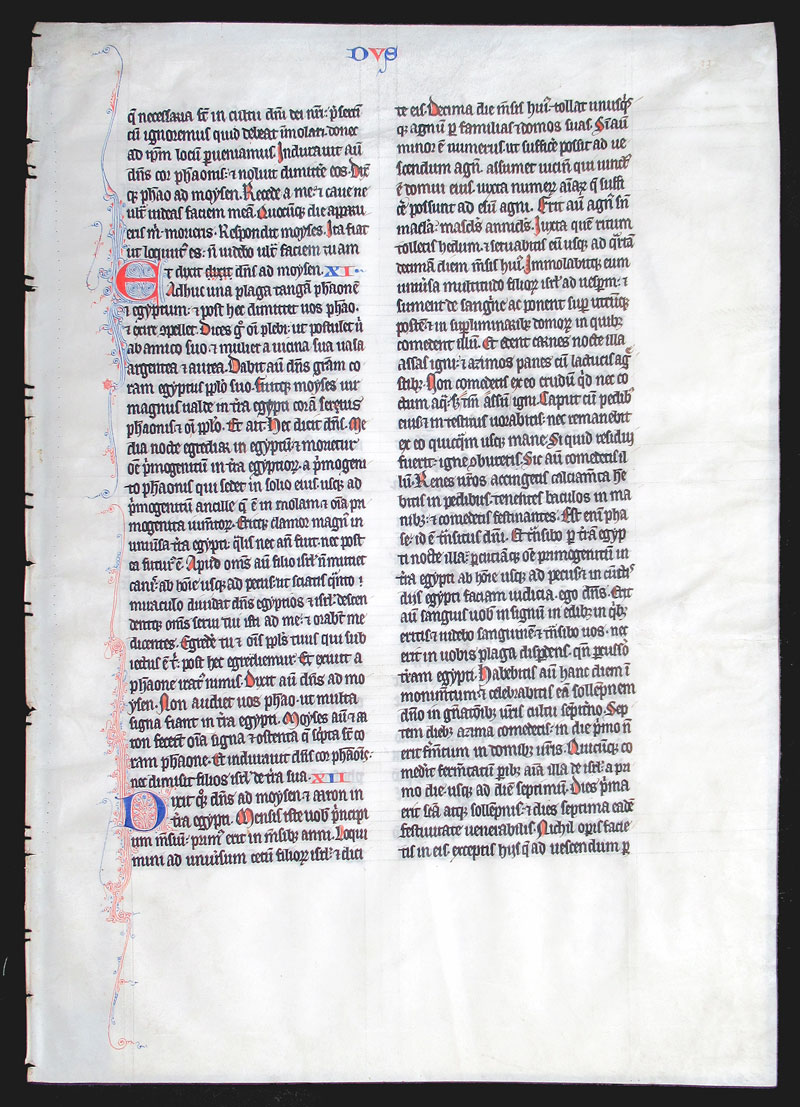 DVS
q̄ necessaria st̄ in cultu dn̄i dei nr̄i· p̄sertī
cū ignoremus quid debeat īmolari· donec
ad ip̄m locū ꝑueniamus Indurauit aū
dn̄s cor phaonis· ⁊ noluit dimittē eos· Dix̄
qꝫ phao ad moysen· Recede a me· ⁊ caue ne
ultͣ uideas faciem meā· Quocūqꝫ die apparu
eris m̍ morieris· Respondit moyses· Ita fiat
ut locutus es· n̄ uidebo ultͣ faciem tuam
Et dixit dixit dn̄s ad moysen· XI·
Adhuc una plaga tangā phaonē
⁊ egyptum· ⁊ post hec dimittet uos phao·
⁊ exire ꝯpellet· Dices gͦ om̍ plebi· ut postulet ū
ab amico suo· ⁊ mulier a uicina sua uasa
argentea ⁊ aurea· Dabit aū dn̄s grām co
ram egyptiis pplo suo· Fuitqꝫ moyses uir
magnus ualde in tr̄a egypti corā seruis
phaonis ⁊ om̍ pplo· Et ait· Hec dicit dn̄s· Me
dia nocte egrediar in egyptū· ⁊ morietur
oē p̍mogenitū in tr̄a egyptior̄· a p̍mogeni
to phaonis qui sedet in solio eius· usqꝫ ad
p̍mogenitū ancille q̄ ē in mola· ⁊ om̄a pri
mogenita iumentor̄· Eritqꝫ clamor magn̍ in
uniuͥsa tr̄a egypti· q̄lis nec an̄ fuit· nec post
ea futur̍ ē· Apud om̄s aū filios isrl̄ n̄ mutiet
canis· ab hōie usqꝫ ad pecus· ut sciatis q̄nto
miraculo diuidat dn̄s egyptios ⁊ isrl̄· descen
dentqꝫ om̄s serui tui isti ad me· ⁊ orabt̄ me
dicentes· Egredē tu· ⁊ om̄s ppl̄s tuus qui sub
iectus ē t̍· post hec egrediemur· Et exiuit a
phaone irat̍ nimis· Dixit aū dn̄s ad mo
ysen· Non audiet uos phao· ut multa
signa fiant in tr̄a egypti· Moyses aū ⁊ aa
ron fecer̄t om̄a signa ⁊ ostenta q̄ sc̍pta st̄ co
ram phaone· Et indurauit dn̄s cor phaōis·
nec dimisit filios isrl̄ de tr̄a sua· XII
Dixit qꝫ dn̄s ad moysen ⁊ aaron in
tr̄a egypti· Mensis iste uob̍ p̍ncipi
um m̄siū· prim̍ erit in m̄sibꝫ anni· Loqui
mini ad uniuͥsum cetū filior̄ isrl̄· ⁊ dici
te eis· Decima die m̄sis hui̍· tollat unusqͥs
qꝫ agnū ꝑ familias ⁊ domos suas· Sin̄ aū
minor ē numerus ut sufficē possit ad ue
scendum agn̄· assumet uicinū qui iunct̍
ē domui eius· iuxta numer̄ aīar̄ q̄ suffi
cē possunt ad esū agni· Erit aū agn̍ sn̄
macl̄a· mascl̍s annicl̍s· Juxta quē ritum
tolletis hedum· ⁊ seruabitis eū usqꝫ ad qͣrtā
decimā diem m̄sis hui̍· Immolabitqꝫ eum
uniuͥsa multitudo filior̄ isrl̄ ad uesperā· ⁊
sument de sangͥne ac ponent supͣ utrūqꝫ
postē· ⁊ in suꝑluminaribꝫ domor̄ in quibꝫ
comedent illū· Et edent carnes nocte illa
assas igni· ⁊ azimos panes cū lactucis agͤ
stibꝫ· Non comedetis ex eo crudū qͥd nec co
ctum aqͣ· sꝫ tm̄ assū igni· Caput cū pedibꝫ
eius ⁊ intestinis uorabitis· nec remanebit
ex eo quicqͣm usqꝫ mane· Si quid residuū
fuerit· igne ꝯburetis· Sic aū comedetis il
lū· Renes ur̄os accingetis· calciam̄ta he
bitis in pedibus· tenentes baculos in ma
nibꝫ· ⁊ comedetis festinantes· Est eni̍ pha
se· id ē trͣnsitus dn̄i· Et trͣnsibo ꝑ tr̄am egyp
ti nocte illa· ꝑcuciāqꝫ oē p̍mogenitū in
tr̄a egypti ab hōie usqꝫ ad pecus· ⁊ in cunctis
diis egypti faciam iudicia· ego dn̄s· Erit
aū sanguis uob̍ in signū in edibꝫ in qͥbꝫ
eritis· ⁊ uidebo sanguinē ⁊ trͣnsibo uos· nec
erit in uobis plaga disꝑdens· qn̄ ꝑcusso
tr̄am egypti· Habebitis aū hanc diem ī
monimtum· ⁊ celebrabitis eā sollēpnem
dn̄o in gn̄atōibꝫ ur̄is cultu sept̍no· Sep
tem diebꝫ azima comedetis· in die p̍mo n̄
erit frm̄tum in domibꝫ ur̄is· Quicūqꝫ co
mederit ferm̄tatū· ꝑibit aīa illa de isrl̄· a pri
mo die usqꝫ ad diem septimū· Dies p̍ma
erit scā atqꝫ sollēpnis· ⁊ dies septima eadē
festiuitate uenerabilis· Nichil opͥis facie
tis in eis· exceptis hijs q̄ ad uescendum ꝑ